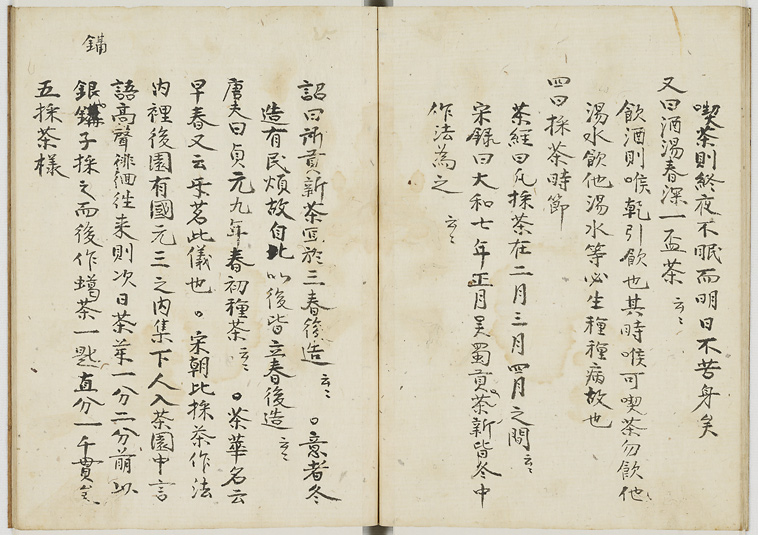 喫茶則終夜不眠而明日不苦身矣
又曰酒渇春深一盃茶云々
飲酒則喉乾引飲也其時喉可喫茶勿飲他
湯水飲他湯水等必生種種病故也
四曰採茶時節
茶経曰凡採茶在二月三月四月之間云々
宋録曰大和七年正月呉蜀貢茶新皆冬中
作法為之云々
詔曰所貢新茶宜於三春後造云々。意者冬
造有民煩故自此以後皆立春後造云々
唐史曰貞元九年春初種茶云々。茶華名云
早春又云芽茗此儀也。宋朝比採茶作法
内裡後園有國元三之内集下人入茶園中言
語高聲徘徊往来則次日茶芽一分二分萠以
銀鑷子採之而後作蠟茶一匙直分一千貫矣
五採茶様
鑷